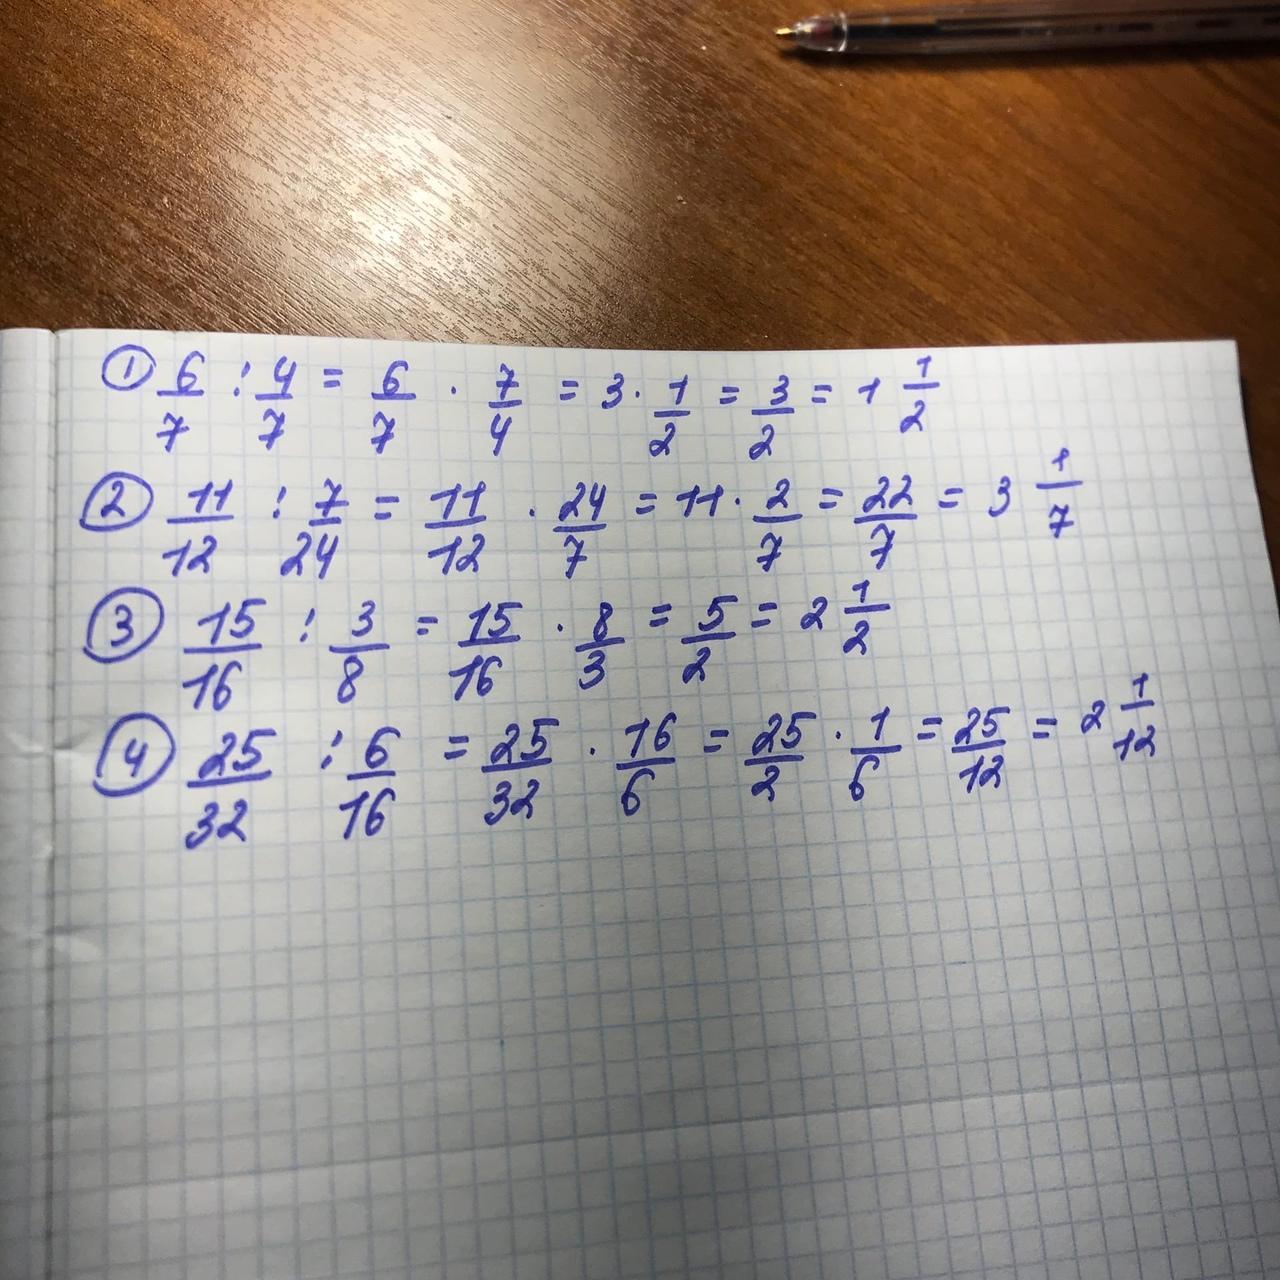 ① 6/7 : 4/7 = 6/7 · 7/4 = 3 · 1/2 = 3/2 = 1 1/2
② 11/12 : 7/24 = 11/12 · 24/7 = 11 · 2/7 = 22/7 = 3 1/7
③ 15/16 : 3/8 = 15/16 · 8/3 = 5/2 = 2 1/2
④ 25/32 : 6/16 = 25/32 · 16/6 = 25/2 · 1/6 = 25/12 = 2 1/12